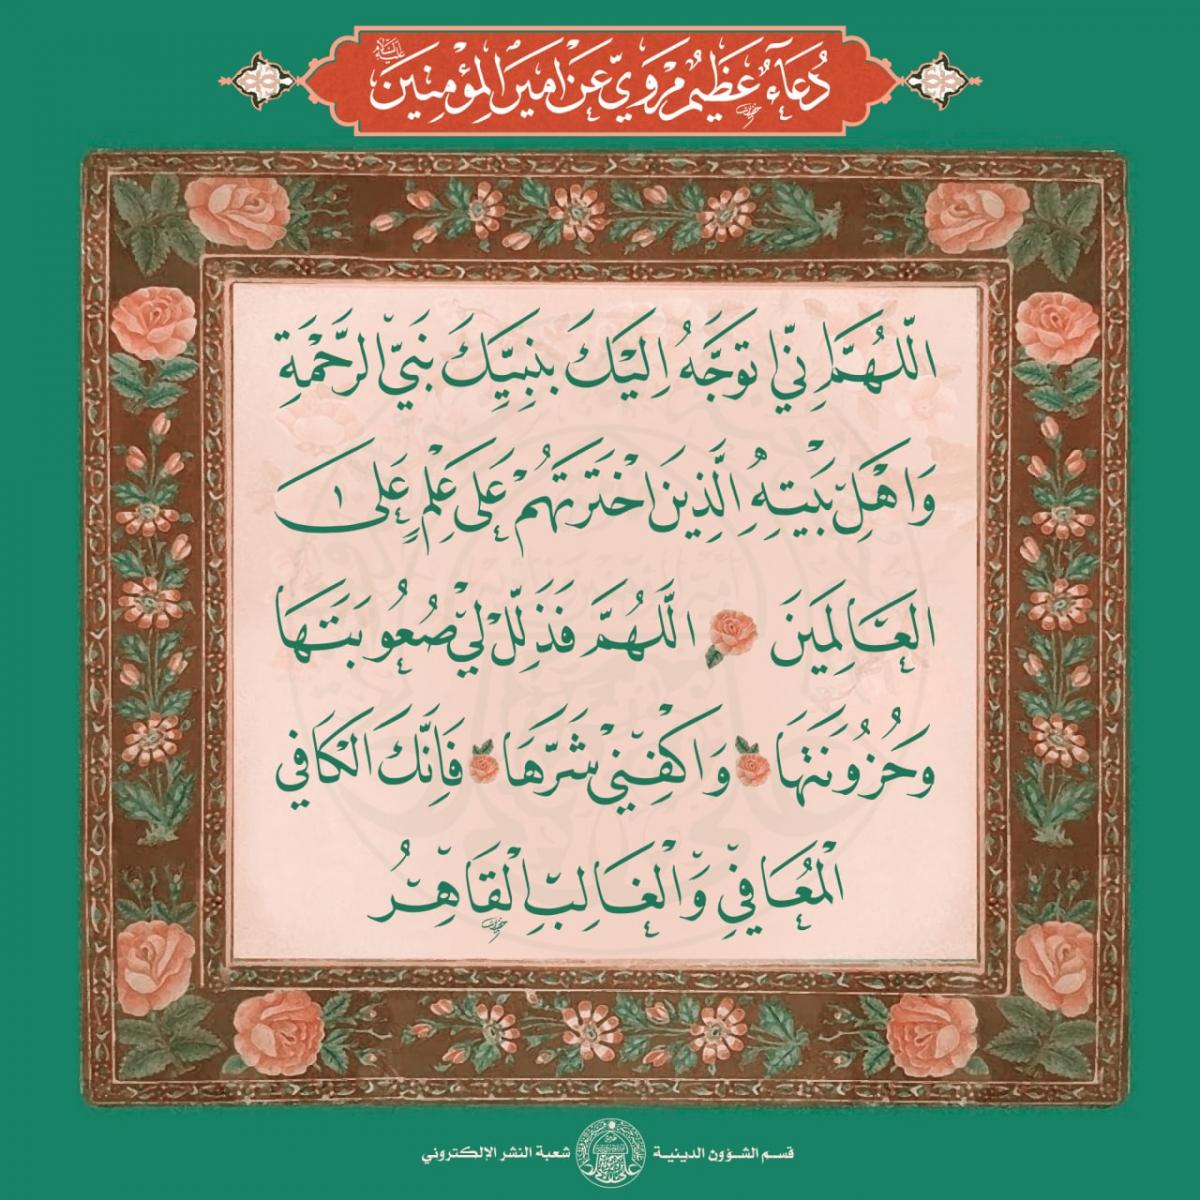 دُعَآءٌ عَظِيمٌ مَرْوِيٌّ عَنْ اَمِيرِ الْمُؤْمِنِينَ عليه السلام
اَللّهُمَّ اِنِّي اَتَوَجَّهُ اِلَيْكَ بِنَبِيِّكَ نَبِيِّ الرَّحْمَةِ
وَاَهْلِ بَيْتِهِ الَّذِينَ اخْتَرْتَهُمْ عَلَى عِلْمٍ عَلَى
الْعَالَمِينَ اَللّهُمَّ فَذَلِّلْ لِي صُعُوبَتَهَا
وَحُزُونَتَهَا وَاكْفِنِي شَرَّهَا فَاِنَّكَ الْكَافِي
الْمُعَافِي وَالْغَالِبُ الْقَاهِرُ
قسم الشؤون الدينية شعبة النشر الإلكتروني